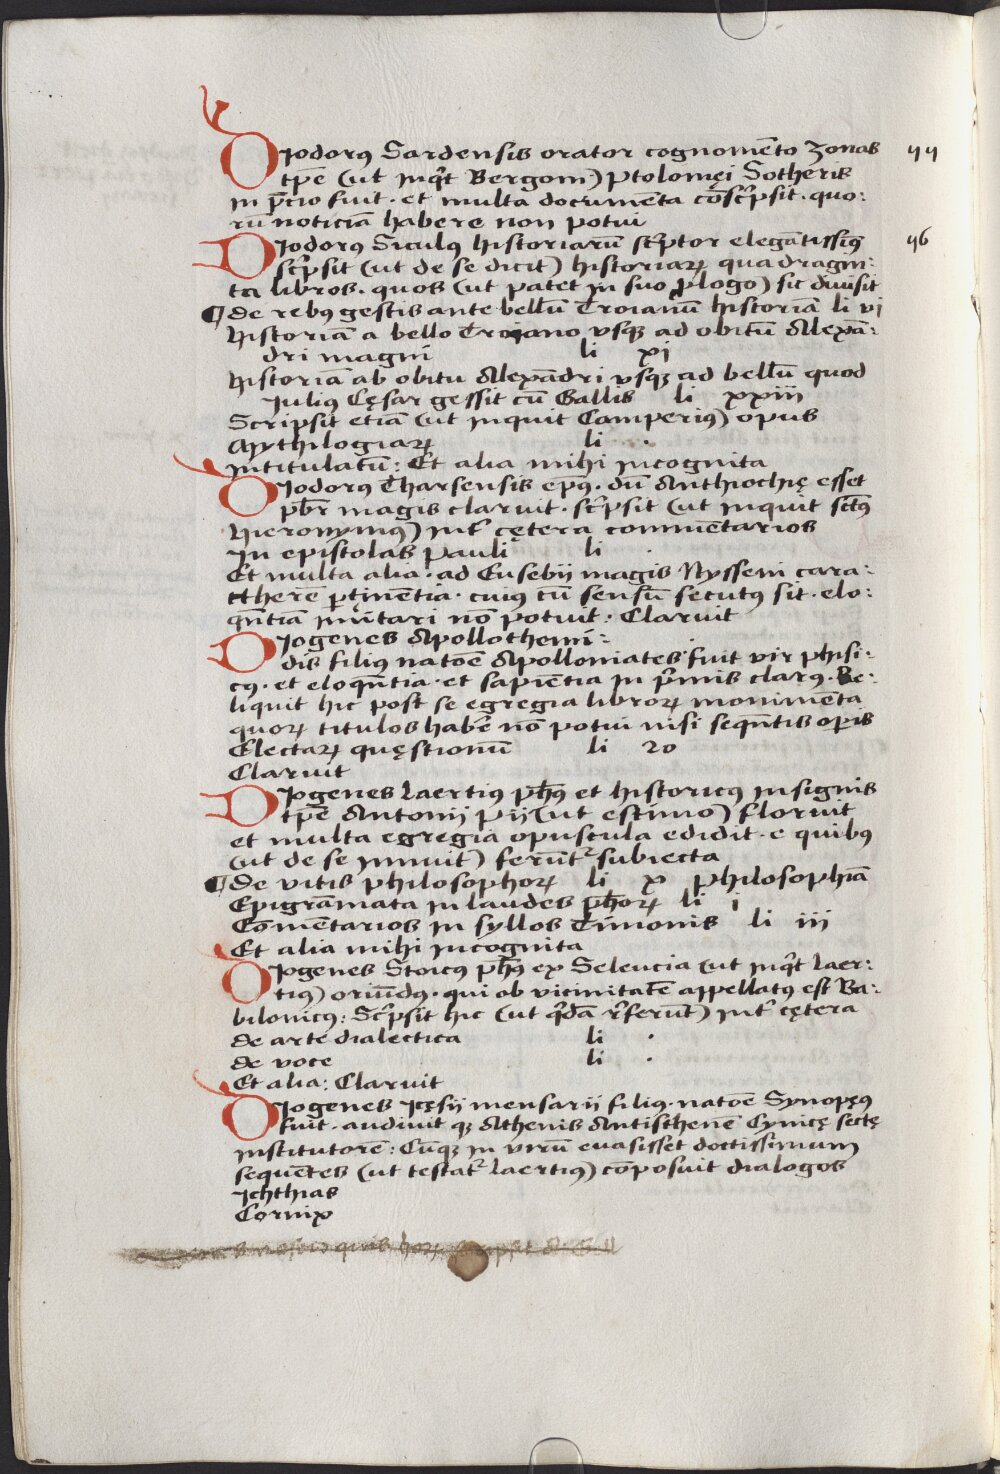 Diodorꝰ Sardensis orator cognomēto Zonas 44
tꝑe (ut inqͥt Bergom) Ptolomęi Sotheris
in p̄cio fuit · et multa documenta cōscͥpsit · quo:
rū noticiā habere non potui
Diodorꝰ Siculꝰ historiarū scͥptor elegātissimꝰ 46
scͥpsit (ut de se dicit) historiaꝝ quadragin:
ta libros · quos (ut patet in suo ꝓlogo) sic diuisit
¶ De rebꝰ gestis ante bellū Troianū historiā li vi
Historiā a bello Troiano vsqꝫ ad obitū Alexā:
dri magni li xi
Historiā ab obitu Alexādri vsqꝫ ad bellū quod
Iulius Cęsar gessit cū Gallis li xxiii
Scripsit etiā (ut inquit Camperiꝰ) opus
Mythilogiaꝝ li ·
intitulatū: Et alia mihi incognita
Diodorꝰ Tharsensis ep̄ꝰ · dū Anthiochię esset
pb̄r magis claruit · scͥpsit (ut inquit sctꝰ
Hieronymꝰ) int̄ cętera commentarios
In epistolas Pauli li ·
Et multa alia · ad Eusebii magis Nysseni cara:
ctherē ꝑtinentia · cuiꝰ cū sensū secutꝰ sit · elo:
qn̄tiā imitari nō potuit · Claruit
Diogenes Apollothemi:
dis filiꝰ natōe Apolloniates fuit vir phisi:
cꝰ · et eloqn̄tia · et sapiētia in pͥmis clarꝰ · Re:
liquit hic post se egregia libroꝝ monimēta
quoꝝ titulos habē nō potui nisi seqn̄tis oꝑis
Electaꝝ quęstionū li 20
Claruit
Diogenes Laertiꝰ ph̄ꝰ et historicꝰ insignis
tꝑe Antonii Pii (ut estimo) floruit
et multa egregia opuscula edidit · e quibꝰ
(ut de se innuit) ferūt̄ subiecta
¶ De vitis philosophoꝝ li x philosophiā
Epigrāmata in laudes ph̄oꝝ li i
Cōmētarios in syllos Timonis li iii
Et alia mihi incognita
Diogenes Stoicꝰ ph̄ꝰ ex Seleucia (ut inqͥt Laer:
tiꝰ) oriūdꝰ · qui ob vicinitatē appellatꝰ est Ba:
bilonicꝰ: Scͥpsit hic (ut qͥdā r̄ferūt) int̄ cętera
de arte dialectica li ·
de voce li ·
Et alia: Claruit
Diogenes Icęsii mensarii filiꝰ · natōe Synopęꝰ
fuit · audiuit qꝫ Athenis Antisthenē Cynicę sectę
institutorē: Cūqꝫ in virū euasisset doctissimum
sequētes (ut testat̄ Laertiꝰ) cōposuit dialogos
Ichthias
Cornix